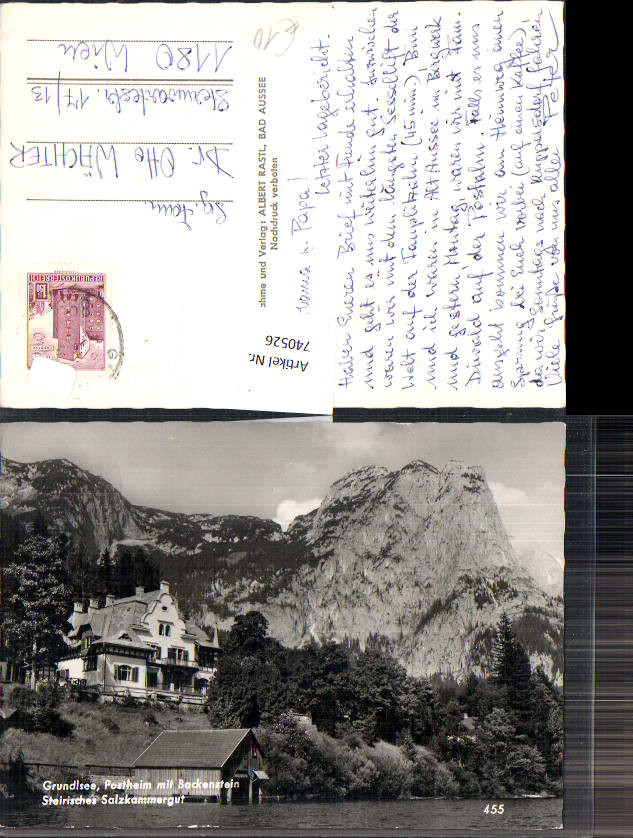 € 10
Sg. Fam.
Dr. Otto WÄCHTER
Sternwartestr. 17/13
1180 Wien
REPUBLIK ÖSTERREICH
1.50
ahme und Verlag: ALBERT RASTL, BAD AUSSEE
Nachdruck verboten
Artikel Nr.
740526
Papa!
Letzter Lagebericht.
Haben Euren Brief mit Freude erhalten
und geht es uns weiterhin gut. Inzwischen
waren wir mit dem längsten Sessellift der
Welt auf der Tauplitzalm (45 min.) Bim
und ich waren in Alt Aussee im Bergwerk
und gestern, Montag, waren wir mit Fam.
Diwald auf der Postalm. Falls es uns
ausgeht kommen wir am Heimweg einen
Sprung bei Euch vorbei (auf einen Kaffee)
da wir sonntags nach Ruppersdorf fahren!
Viele Grüße von uns allen Peter
Grundlsee, Postheim mit Backenstein
Steirisches Salzkammergut
455